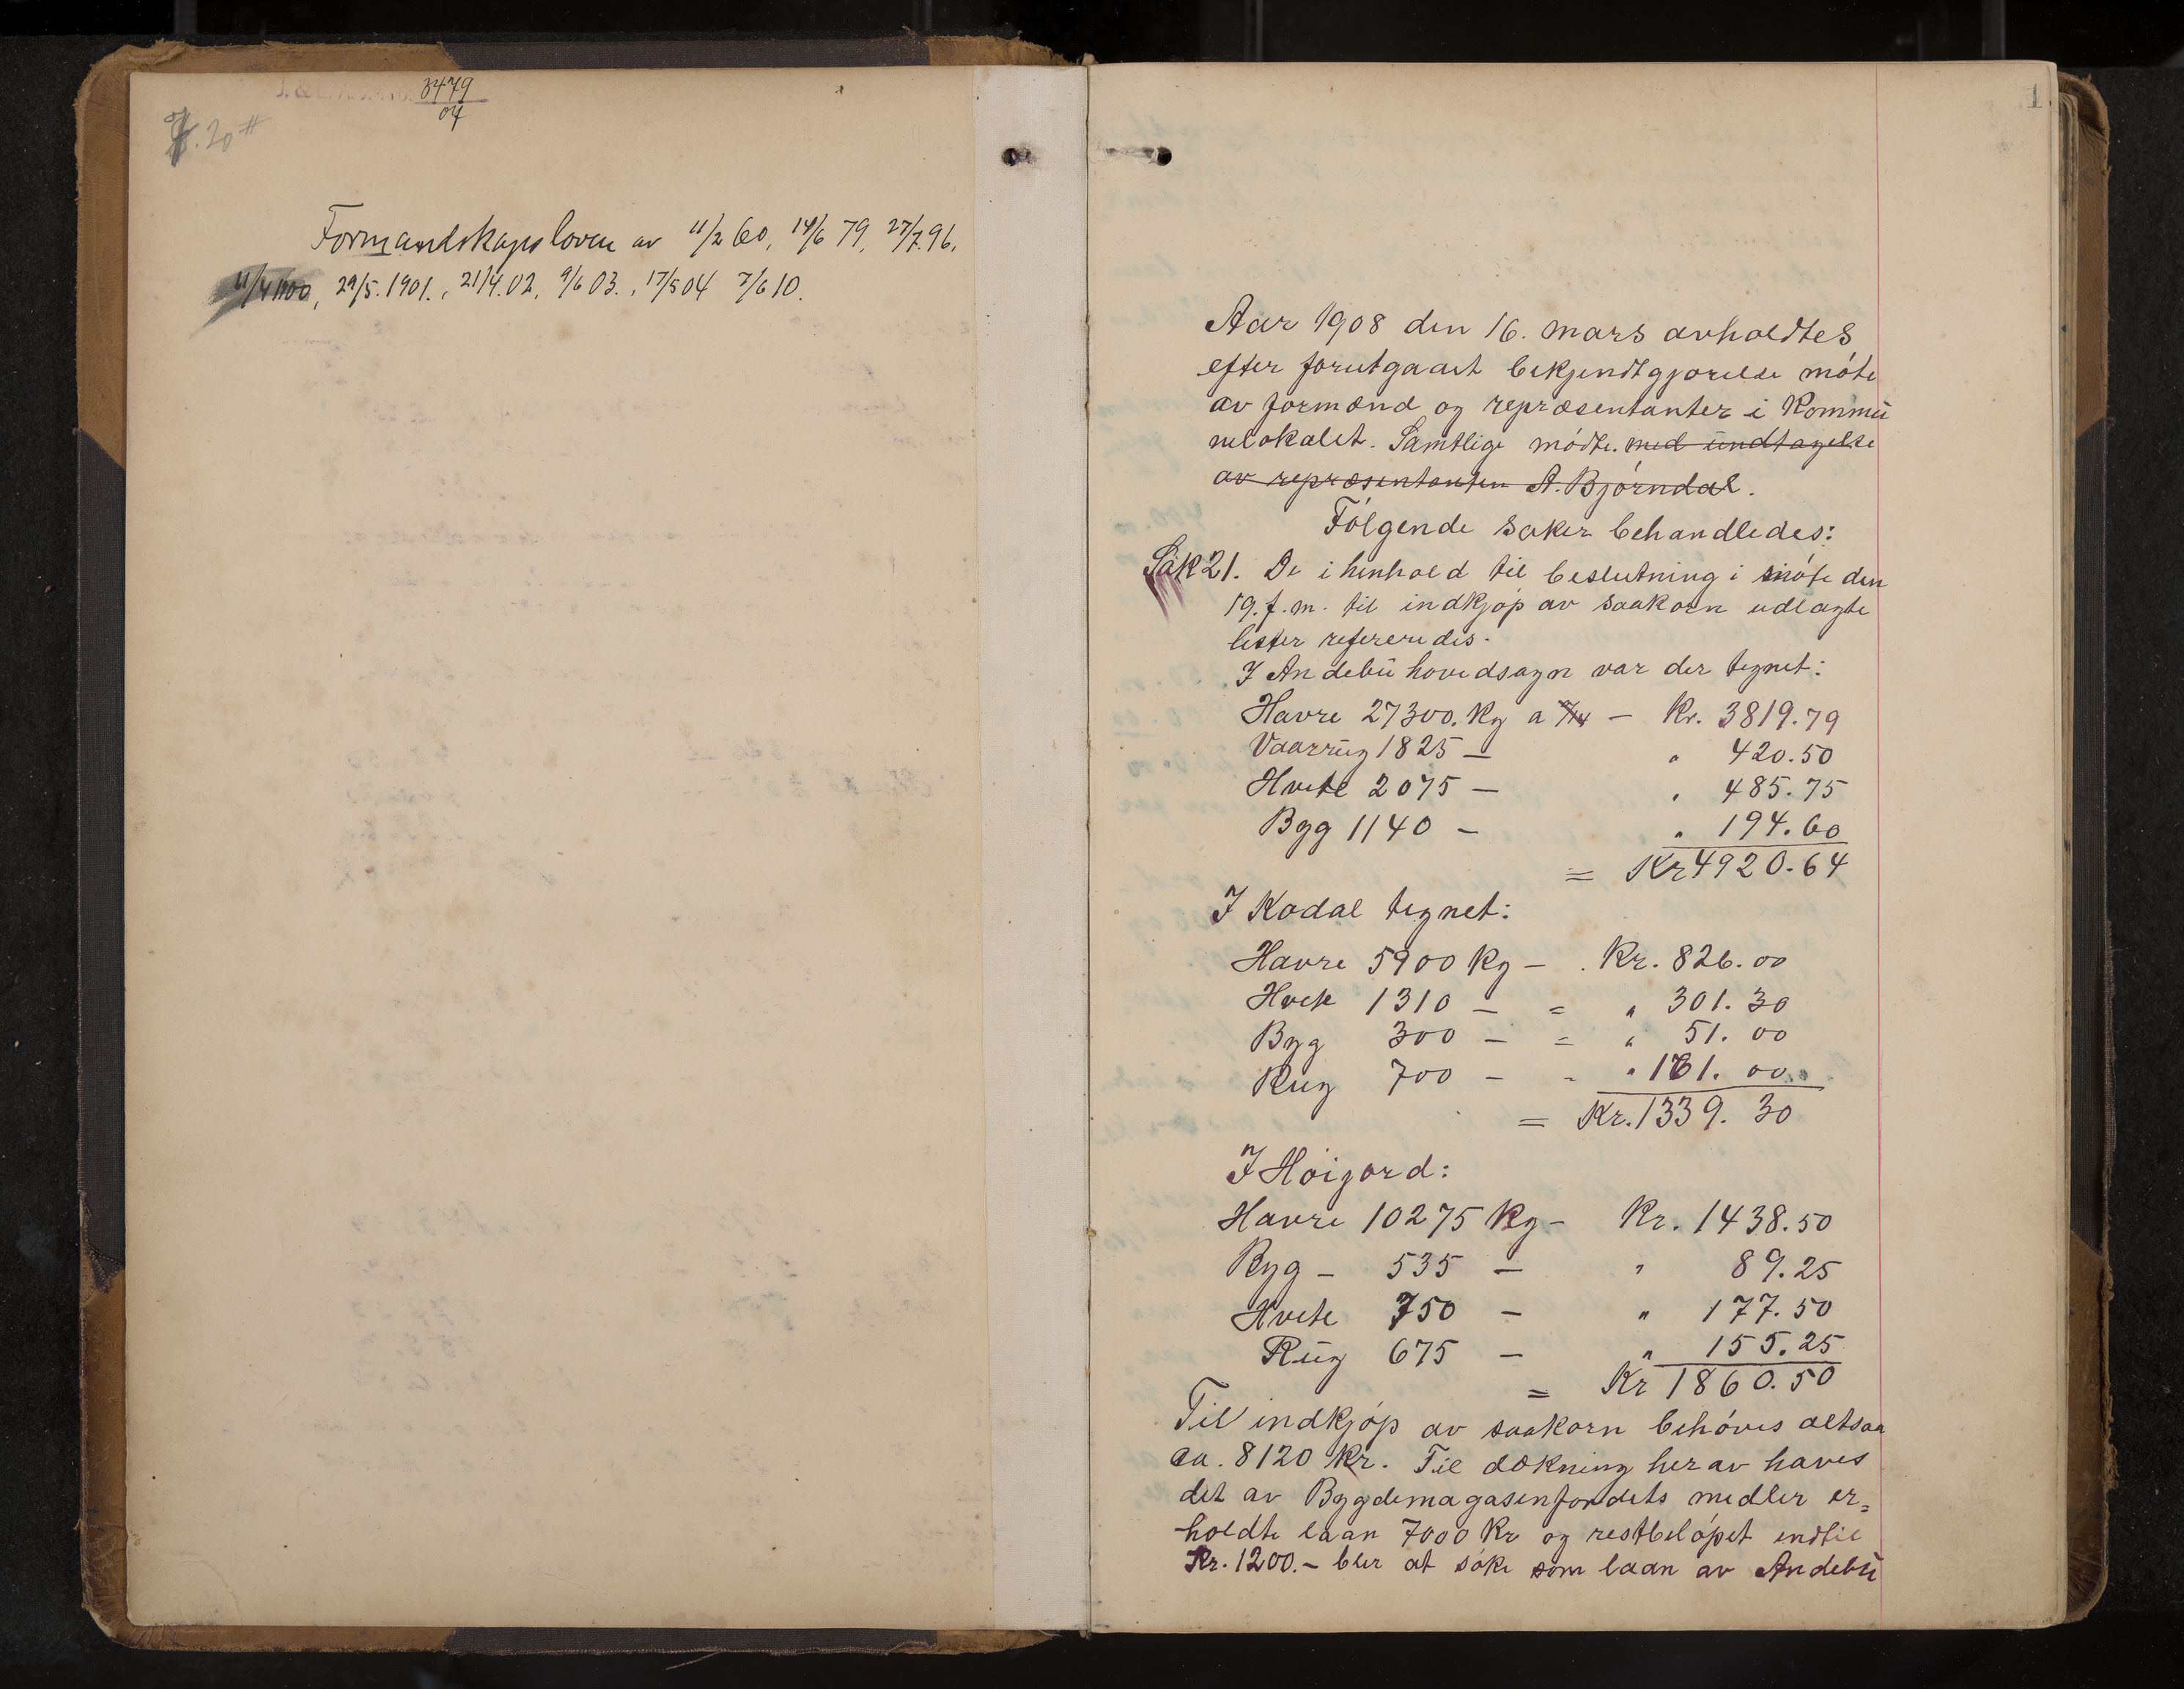 3479
04
20 #
Formandskapsloven av 11/2 60, 14/6 79, 27/7.96.
11/4 1900, 29/5. 1901., 21/4.02, 9/6 03., 17/5 04 7/6 10.
1
Aar 1908 den 16. mars avholdtes
efter forutgaaet bekjendtgjørelse møte
av formænd og repræsentanter i Kommu
nelokalet. Samtlige mødte. med undtagelse
av repræsentanten A. Bjørndal.
Følgende saker behandledes:
Sak 21. De i henhold til beslutning i møte den
19. f. m. til indkjøp av saakorn udlagte
lister refereredes.
I Andebu hovedsogn var der tegnet:
Havre 27300. Kg a — Kr. 3819.79
Vaarrug 1825 — " 420.50
Hvete 2075 — " 485.75
Byg 1140 — " 194.60
= Kr 4920.64
I Kodal tegnet:
Havre 5900 Kg — Kr. 826.00
Hvete 1310 — = " 301.30
Byg 300 — = " 51.00
Rug 700 — - " 161.00
= Kr. 1339.30
I Høijord:
Havre 10275 Kg — Kr. 1438.50
Byg — 535 — " 89.25
Hvete 750 — " 177.50
Rug 675 — " 155.25
= Kr 1860.50
Til indkjøp av saakorn behøves altsaa
ca. 8120 Kr. Til dækning herav haves
det av Bygdemagasenfondets midler er=
holdte laan 7000 Kr og restbeløpet indtil
Kr. 1200.- blir at søke som laan av Andebu